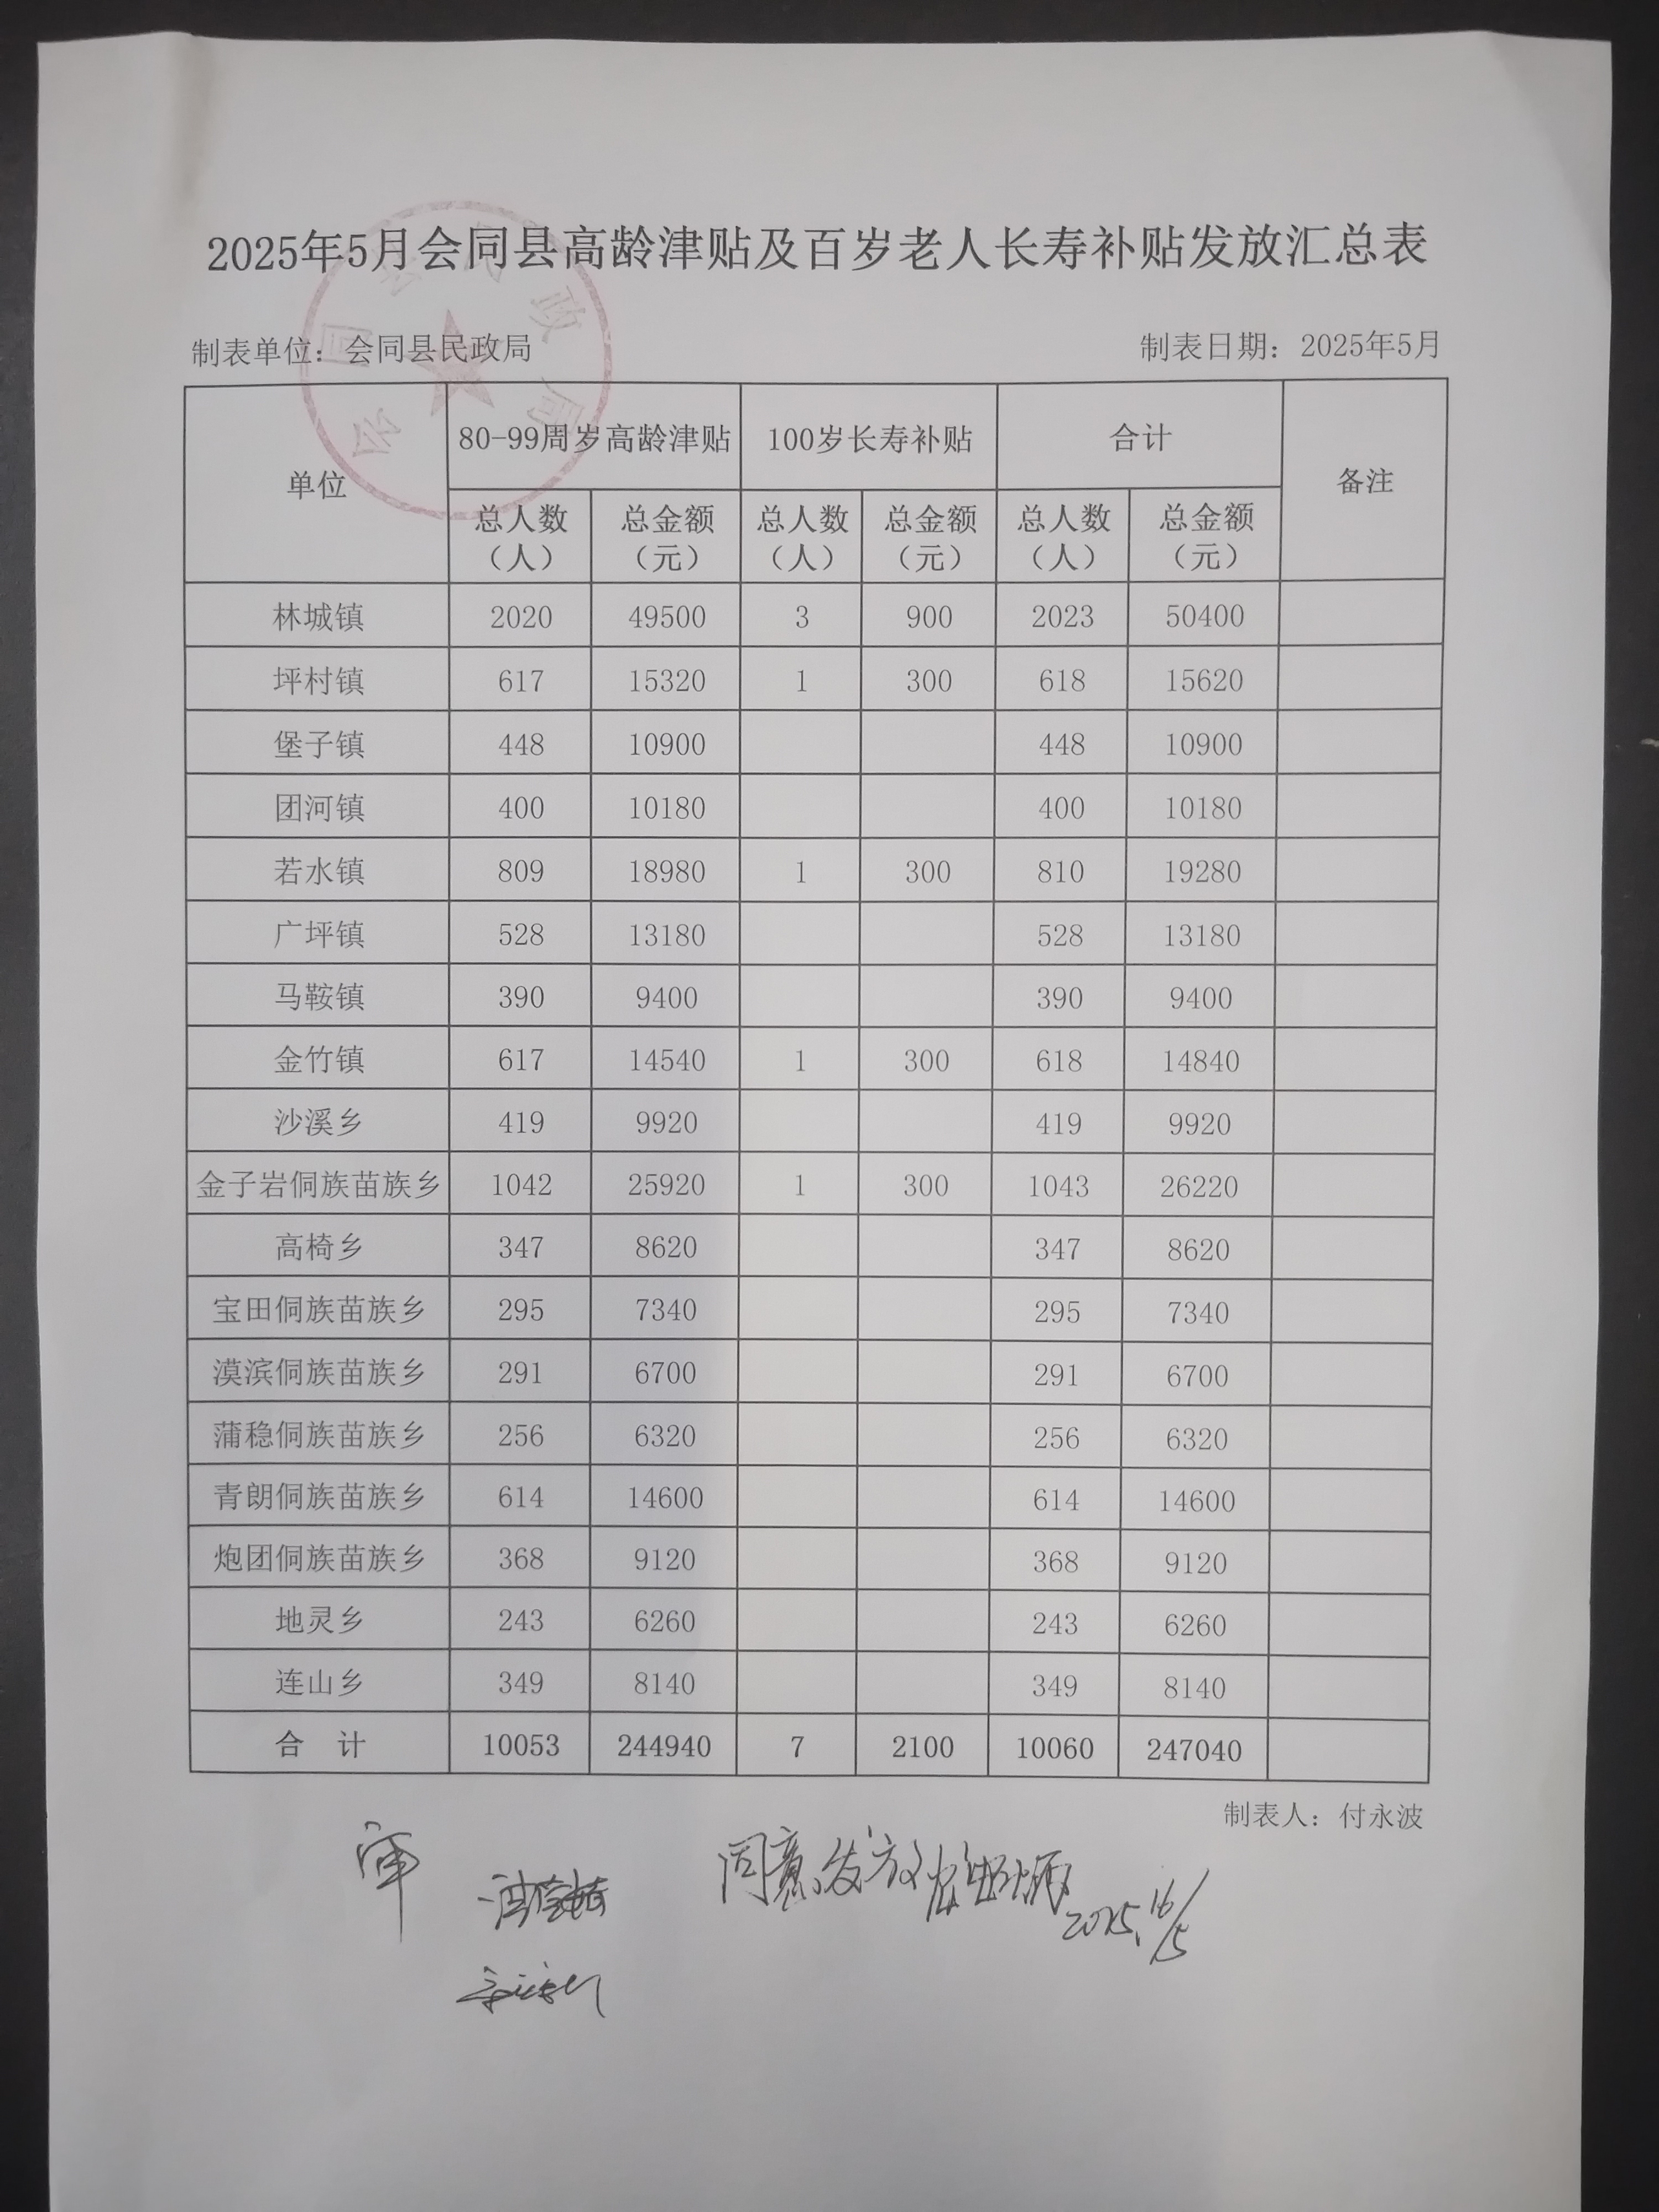 2025年5月会同县高龄津贴及百岁老人长寿补贴发放汇总表
会同县民政局
制表单位：会同县民政局 制表日期：2025年5月
单位 80-99周岁高龄津贴 100岁长寿补贴 合计 备注
总人数（人） 总金额（元） 总人数（人） 总金额（元） 总人数（人） 总金额（元）
林城镇 2020 49500 3 900 2023 50400
坪村镇 617 15320 1 300 618 15620
堡子镇 448 10900 448 10900
团河镇 400 10180 400 10180
若水镇 809 18980 1 300 810 19280
广坪镇 528 13180 528 13180
马鞍镇 390 9400 390 9400
金竹镇 617 14540 1 300 618 14840
沙溪乡 419 9920 419 9920
金子岩侗族苗族乡 1042 25920 1 300 1043 26220
高椅乡 347 8620 347 8620
宝田侗族苗族乡 295 7340 295 7340
漠滨侗族苗族乡 291 6700 291 6700
蒲稳侗族苗族乡 256 6320 256 6320
青朗侗族苗族乡 614 14600 614 14600
炮团侗族苗族乡 368 9120 368 9120
地灵乡 243 6260 243 6260
连山乡 349 8140 349 8140
合 计 10053 244940 7 2100 10060 247040
制表人：付永波
同意发放
2025.16/5